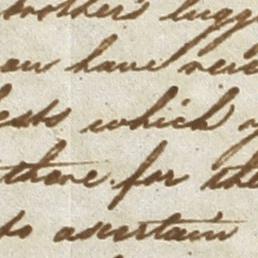 brother's sugg
an have rece
ests which y
there for the
to ascertain